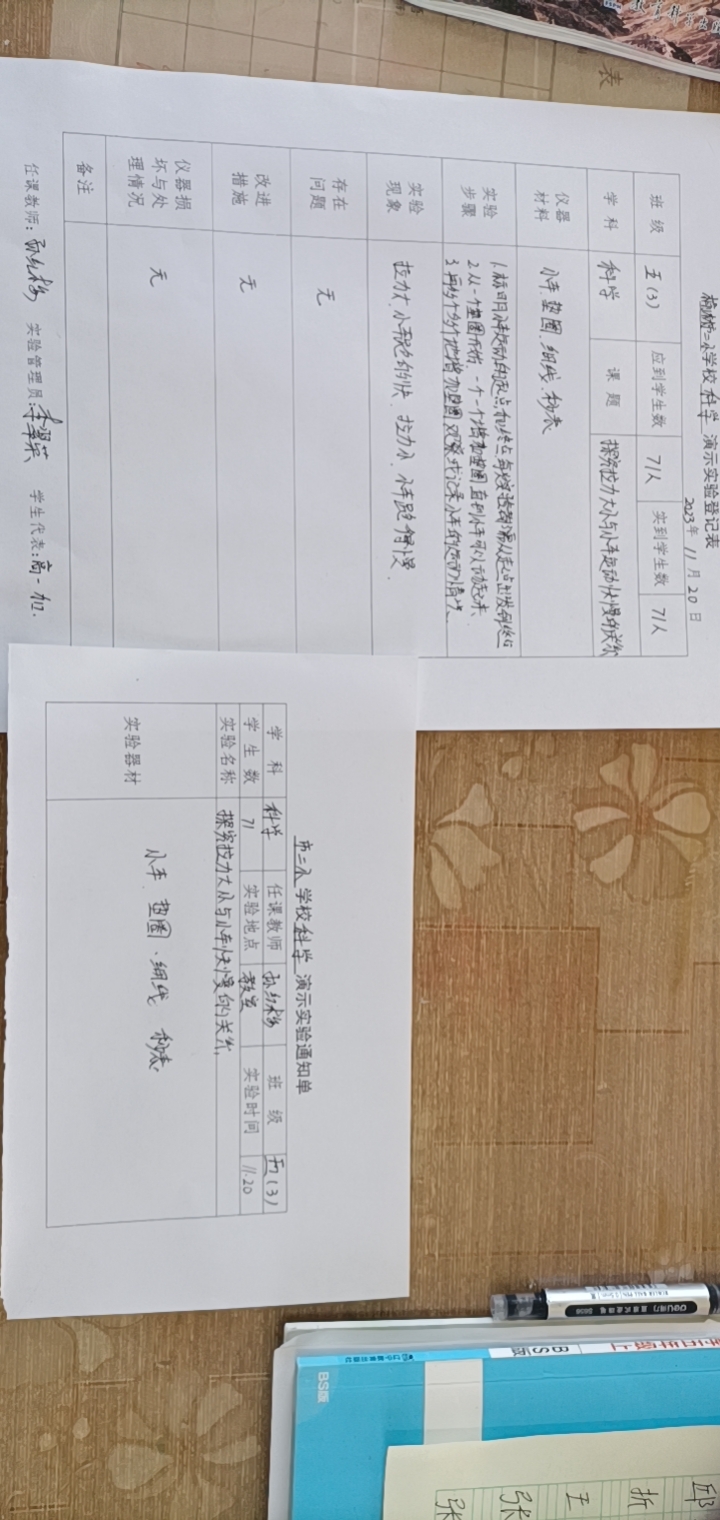 学校科学 演示实验登记表
2023年 11月 20日
班级 五(3) 应到学生数 71人 实到学生数 71人
学科 科学 课题 探究拉力大小与小车运动快慢的关系
仪器材料 小车、垫圈、细线、秒表
实验步骤 1.标明小车运动的起点和终点,每次实验都需从起点出发到终点
2.从一个垫圈开始,一个一个增加垫圈,直到小车可以动起来.
3.再多个多个地增加垫圈,观察或记录小车的运动情况.
实验现象 拉力大、小车跑的快、拉力小、小车跑得慢.
存在问题 无
改进措施 无
仪器损坏与处理情况 无
备注
任课教师: 实验管理员: 学生代表:
市二小 学校 科学 演示实验通知单
学科 科学 任课教师 班级 五(3)
学生数 71 实验地点 教室 实验时间 11.20
实验名称 探究拉力大小与小车快慢的关系.
实验器材 小车、垫圈、细线 秒表.
BS版
BS版
deli
张
张
王
折
邱
表